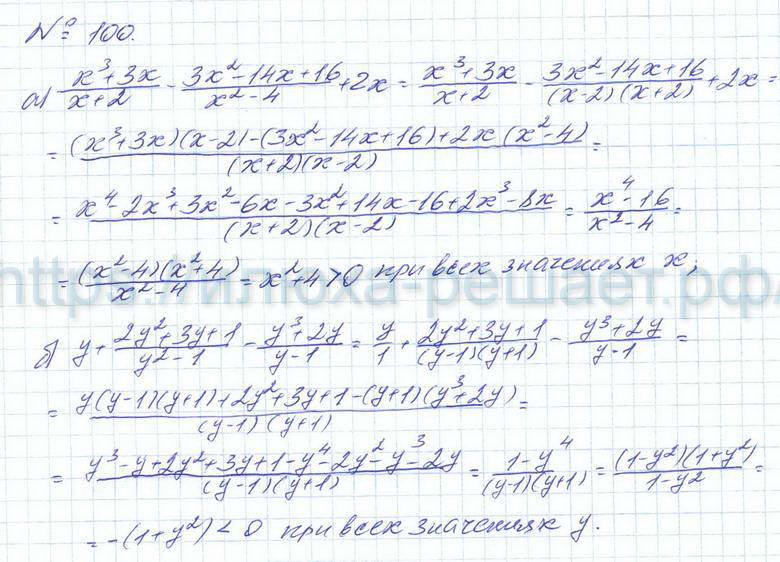 № 100.
а) (x³+3x)/(x+2) - (3x²-14x+16)/(x²-4) + 2x = (x³+3x)/(x+2) - (3x²-14x+16)/((x-2)(x+2)) + 2x =
= ((x³+3x)(x-2)-(3x²-14x+16)+2x(x²-4))/((x+2)(x-2)) =
= (x⁴-2x³+3x²-6x-3x²+14x-16+2x³-8x)/((x+2)(x-2)) = (x⁴-16)/(x²-4) =
= ((x²-4)(x²+4))/(x²-4) = x²+4>0 при всех значениях x;
https://илюха-решает.рф/
б) y + (2y²+3y+1)/(y²-1) - (y³+2y)/(y-1) = y/1 + (2y²+3y+1)/((y-1)(y+1)) - (y³+2y)/(y-1) =
= (y(y-1)(y+1)+2y²+3y+1-(y+1)(y³+2y))/((y-1)(y+1)) =
= (y³-y+2y²+3y+1-y⁴-2y²-y³-2y)/((y-1)(y+1)) = (1-y⁴)/((y-1)(y+1)) = ((1-y²)(1+y²))/(1-y²) =
= -(1+y²)<0 при всех значениях y.